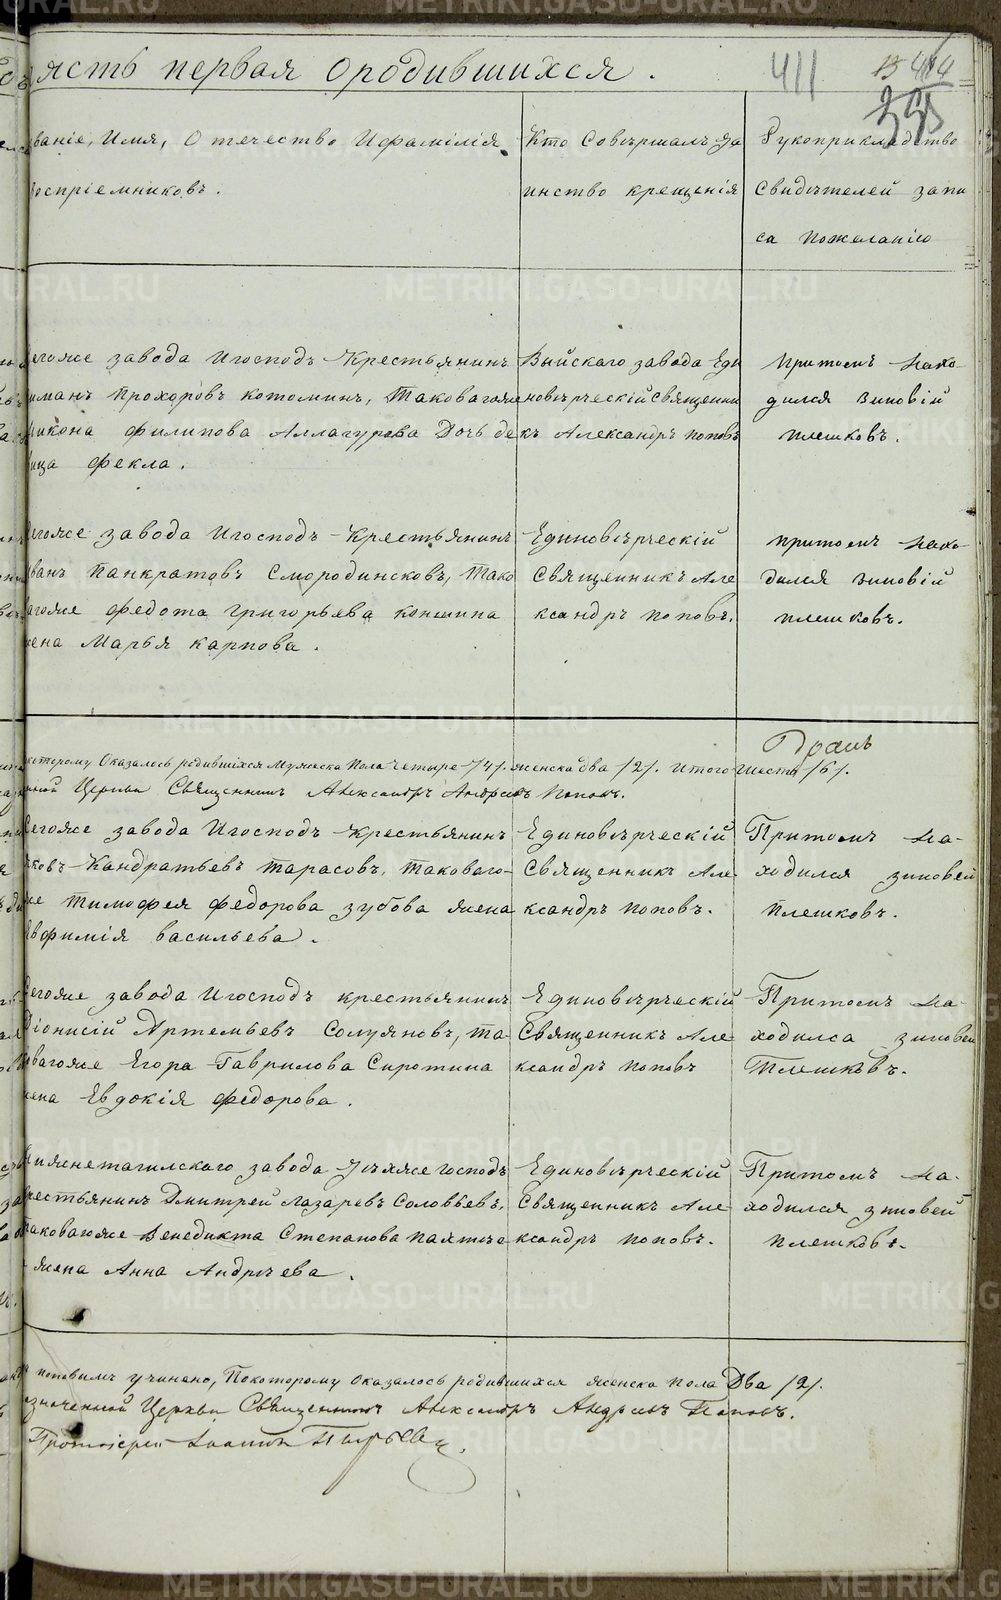 асть первая ородившихся.
411
414
395
званіе, Имя, Отечество Ифамилія
воспріемниковъ.
Кто Совѣршалъ Та
инство крещенія
Рукоприкладство
Свидѣтелей запи
са пожеланію
тегоже завода Игосподъ Крестьянинъ
Прохоровъ котоминъ, Таковагоже
Никона филипова Аллагурова Дочь де
вица фекла.
Выйскаго завода Еди
новѣрческій Священни
къ Александръ поповъ
притомъ нахо-
дился зиновій
плешковъ.
тегоже завода Игосподъ Крестьянинъ
Иванъ Панкратовъ Смородинсковъ, Тако
вагоже федота григорьева
жена Марья карпова.
Единовѣрческій
Священникъ Але
ксандръ поповъ.
притомъ нахо-
дился зиновій
плешковъ.
которому Оказалось родившихся Мужеска Пола четыре /4/. женска два /2/. Итого шесть /6/.
Церкви Священникъ Александръ Андреевъ Поповъ.
Тегоже завода Игосподъ Крестьянинъ
Яковъ Кандратьевъ Тарасовъ, Таковаго-
же Тимофея федорова зубова жена
Евфимія васильева.
Единовѣрческій
Священникъ Але
ксандръ поповъ.
Притомъ на-
ходился зиновей
плешковъ.
Тегоже завода Игосподъ крестьянинъ
Діонисій Артемьевъ Солуяновъ, та-
ковагоже Егора Гаврилова Сиротина
жена Евдокія федорова.
Единовѣрческій
Священникъ Але
ксандръ поповъ
Притомъ на-
ходилса зиновей
Плешковъ.
Нижнетагилскаго завода Тѣхже господъ
крестьянинъ Дмитрей лазаревъ Соловьевъ,
таковагоже Венедикта Степанова
жена Анна Андрѣева.
Единовѣрческій
Священникъ Але
ксандръ поповъ.
Притомъ на-
ходился зиновей
плешковъ.
учинено, Покоторому оказалось родившихся женска пола Два /2/.
означенной Церкви Священникъ Александръ Андреевъ Поповъ.
Протоіерей Іоаннъ
METRIKI.GASO-URAL.RU